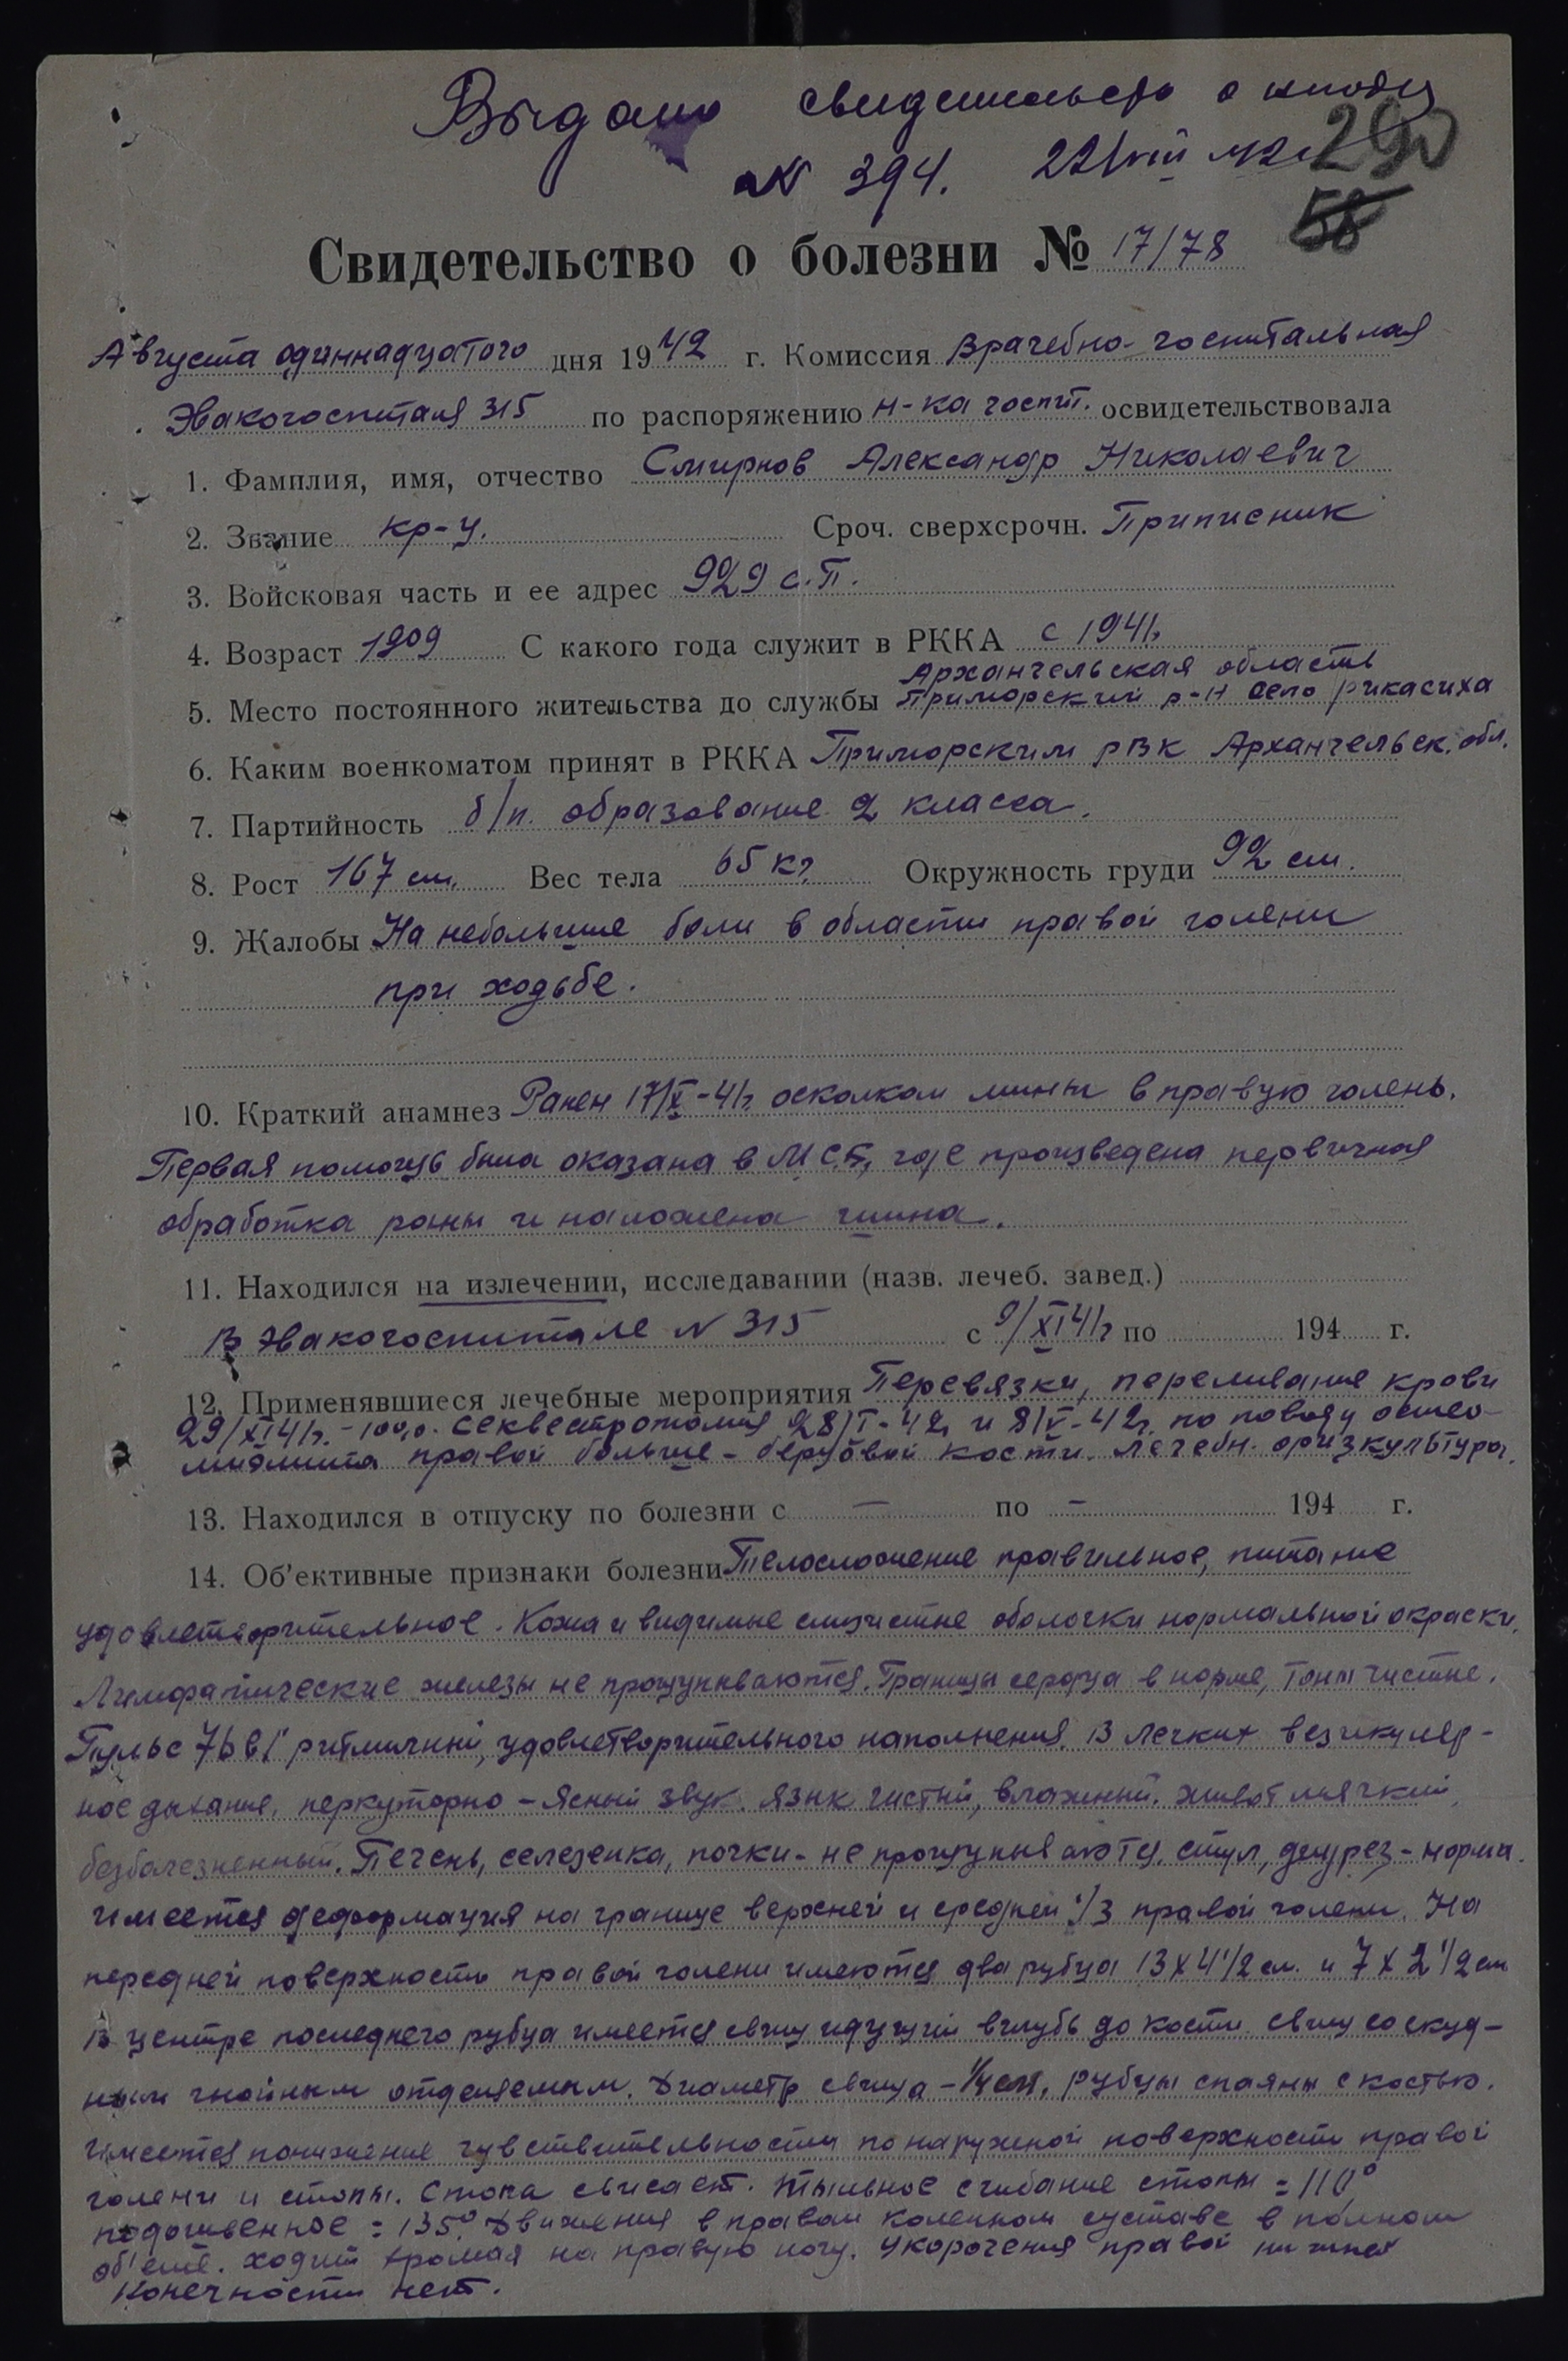 Выдано свидетельство о
№ 394. 22/VIII 42 290
58
Свидетельство о болезни № 17/78
Августа одиннадцатого дня 1942 г. Комиссия Врачебно-госпитальная
Эвакогоспиталя 315 по распоряжению н-ка госпит. освидетельствовала
1. Фамилия, имя, отчество Смирнов Александр Николаевич
2. Звание кр-ц. Сроч. сверхсрочн. Приписник
3. Войсковая часть и ее адрес 929 с.п.
4. Возраст 1909 С какого года служит в РККА с 1941г.
Архангельская область
5. Место постоянного жительства до службы Приморский р-н село Рикасиха
6. Каким военкоматом принят в РККА Приморским РВК Архангельск. обл.
7. Партийность б/п. образование 2 класса.
8. Рост 167 см. Вес тела 65 кг. Окружность груди 92 см.
9. Жалобы На небольшие боли в области правой голени
при ходьбе.
10. Краткий анамнез Ранен 17/X-41г. осколком мины в правую голень.
Первая помощь была оказана в МСБ, где произведена первичная
обработка раны и наложена шина.
11. Находился на излечении, исследавании (назв. лечеб. завед.)
В Эвакогоспитале N 315 с 9/XI 41г по 194 г.
12. Применявшиеся лечебные мероприятия Перевязки, переливание крови
29/XI 41г. - 100,0. секвестротомия 28/I-42г и 8/V-42г. по поводу остео-
миэлита правой больше-берцовой кости. Лечебн. физкультура.
13. Находился в отпуску по болезни с — по — 194 г.
14. Об'ективные признаки болезни Телосложение правильное, питание
удовлетворительное. Кожа и видимые слизистые оболочки нормальной окраски.
Лимфатические железы не прощупываются. Границы сердца в норме, тоны чистые.
Пульс 76 в 1' ритмичный, удовлетворительного наполнения. В легких везикуляр-
ное дыхание, перкуторно - ясный звук. Язык чистый, влажный. Живот мягкий,
безболезненный. Печень, селезенка, почки - не прощупываются, стул, диурез - норма.
Имеется деформация на границе верхней и средней 1/3 правой голени. На
передней поверхности правой голени имеются два рубца 13 х 4 1/2 см. и 7 х 2 1/2 см
В центре последнего рубца имеется свищ идущий вглубь до кости. Свищ со скуд-
ным гнойным отделяемым. Диаметр свища - 1/4 см. Рубцы спаяны с костью.
Имеется понижение чувствительности по наружной поверхности правой
голени и стопы. Стопа свисает. Тыльное сгибание стопы = 110°
подошвенное = 135°. Движения в правом коленном суставе в полном
об'еме. Ходит хромая на правую ногу. Укорочения правой нижней
конечности нет.